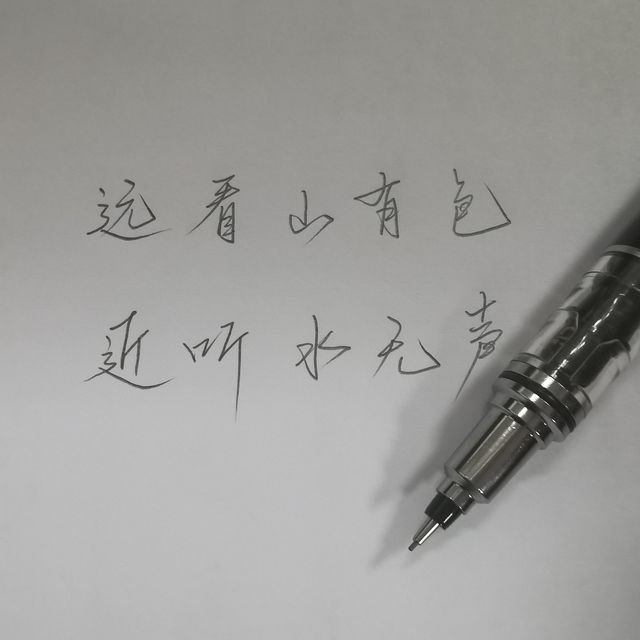 远看山有色
近听水无声